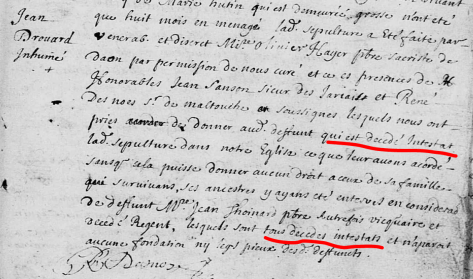 Marie hutin qui est demeurée grosse n'ont été
que huit mois en menage lad. sepulture a Eté faite par
Jean
Drouard
Inhumé
venerab. et discret Mre olivier hayer pbre sacriste de
daon par permission de nous curé et en ces presences de
Honorables Jean Sanson sieur des Jariais et René
Des noes sr. de maltouche soussignes lesquels nous ont
priés de donner aud. deffunt qui est decedé Intestat
lad. sepulture dans notre Eglise ce que leur avons acordé
sans q. cela puisse donner aucun droit a ceux de sa famille
qui survivans, ses ancestres y ayans eté enteres en considerãõn
de deffunt Mre Jean Thoinard pbre autrefois vicquaire et
decedé Regent, lesquels sont tous decedes intestats et n'aparoit
aucune fondation ny legs pieux desd. deffuncts.